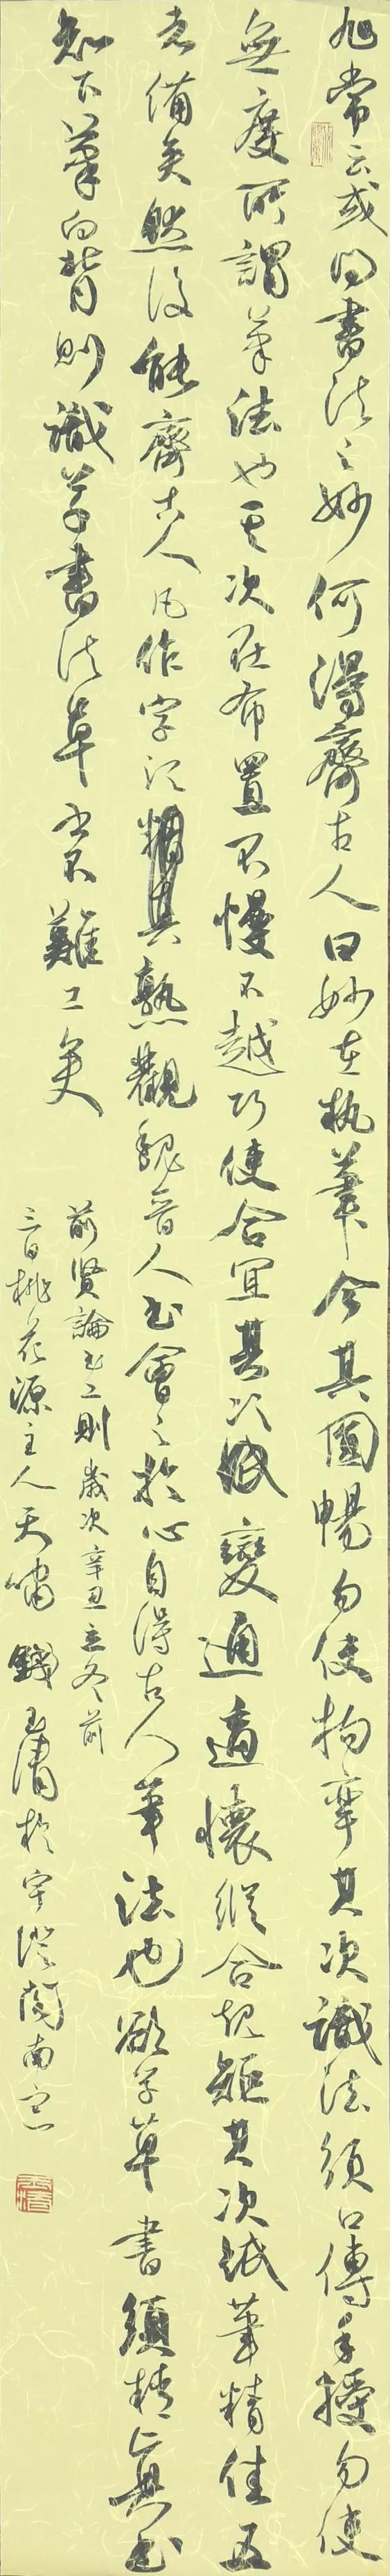 旭常云或问書法之妙何得齊古人曰妙在执筆令其圆暢勿使拘挛其次識法須口傳手授勿使
無度所謂筆法也其次在布置不慢不越巧使合宜其次紙變通適懷縱合規矩其次紙筆精佳五
者備矣然後能齊古人凡作字須精其熟觀魏晋人书會之於心自得古人筆法也欲学草書須精真书
知下筆向背則識草書法草書不難工矣
前贤論书二則歲次辛丑立冬前
三日桃花源主人天嘯錢玉清於宇澄阁南窓